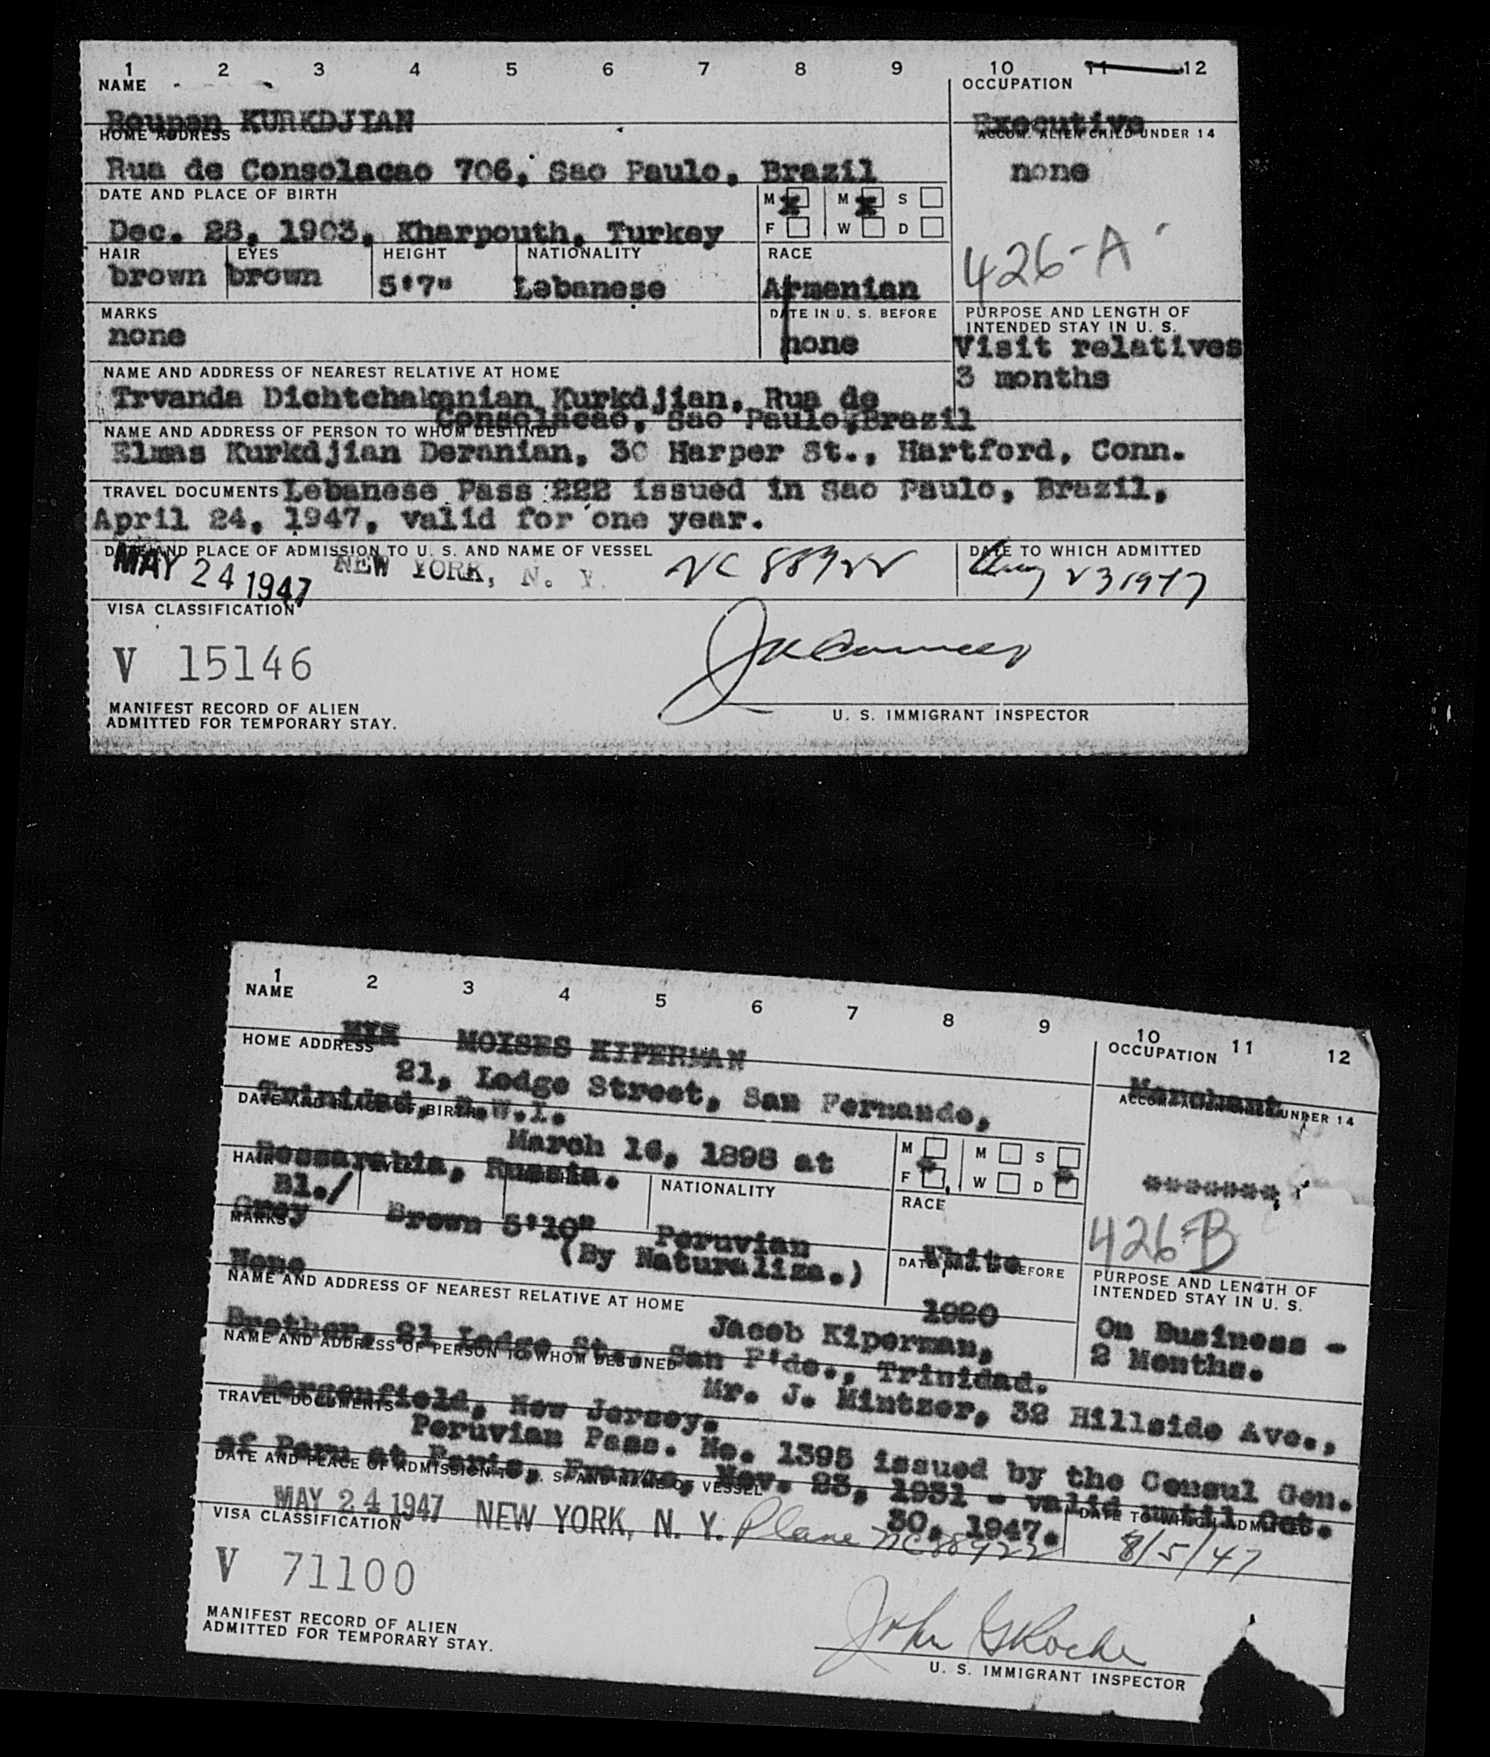 1 2 3 4 5 6 7 8 9 10 11 12
NAME OCCUPATION
Roupen KURKDJIAN Executive
HOME ADDRESS ACCOM. ALIEN CHILD UNDER 14
Rua de Consolacao 706, Sao Paulo, Brazil none
DATE AND PLACE OF BIRTH M x M x S
Dec. 28, 1903, Kharpouth, Turkey F W D
HAIR EYES HEIGHT NATIONALITY RACE 426-A
brown brown 5'7" Lebanese Armenian
MARKS DATE IN U. S. BEFORE PURPOSE AND LENGTH OF
INTENDED STAY IN U. S.
none none Visit relatives
3 months
NAME AND ADDRESS OF NEAREST RELATIVE AT HOME
Trvanda Dichtchakanian Kurkdjian, Rua de
Consolacao, Sao Paulo, Brazil
NAME AND ADDRESS OF PERSON TO WHOM DESTINED
Elmas Kurkdjian Deranian, 30 Harper St., Hartford, Conn.
TRAVEL DOCUMENTS Lebanese Pass 222 issued in Sao Paulo, Brazil,
April 24, 1947, valid for one year.
DATE AND PLACE OF ADMISSION TO U. S. AND NAME OF VESSEL DATE TO WHICH ADMITTED
MAY 24 1947 NEW YORK, N. Y. NC 88922 Aug 23 1947
VISA CLASSIFICATION
V 15146
MANIFEST RECORD OF ALIEN
ADMITTED FOR TEMPORARY STAY.
U. S. IMMIGRANT INSPECTOR
1 2 3 4 5 6 7 8 9 10 11 12
NAME OCCUPATION
MOISES KIPERMAN Merchant
HOME ADDRESS ACCOM. ALIEN CHILD UNDER 14
21, Lodge Street, San Fernando,
Trinidad, B.W.I.
DATE AND PLACE OF BIRTH M M S
March 16, 1898 at
Bessarabia, Russia. F W D
HAIR EYES HEIGHT NATIONALITY RACE ********
Bl./
Grey Brown 5'10" Peruvian White 426-B
(By Naturaliza.)
MARKS DATE IN U. S. BEFORE PURPOSE AND LENGTH OF
INTENDED STAY IN U. S.
None 1920 On Business -
2 Months.
NAME AND ADDRESS OF NEAREST RELATIVE AT HOME
Jacob Kiperman,
Brother, 21 Lodge St., San F'do., Trinidad.
NAME AND ADDRESS OF PERSON TO WHOM DESTINED
Mr. J. Mintzer, 32 Hillside Ave.,
Bergenfield, New Jersey.
TRAVEL DOCUMENTS
Peruvian Pass. No. 1395 issued by the Consul Gen.
of Peru at Paris, France, Nov. 23, 1931 - valid until Oct.
30, 1947.
DATE AND PLACE OF ADMISSION TO U. S. AND NAME OF VESSEL DATE TO WHICH ADMITTED
MAY 24 1947 NEW YORK, N. Y. Plane NC88922 8/5/47
VISA CLASSIFICATION
V 71100
MANIFEST RECORD OF ALIEN
ADMITTED FOR TEMPORARY STAY.
John G Roche
U. S. IMMIGRANT INSPECTOR